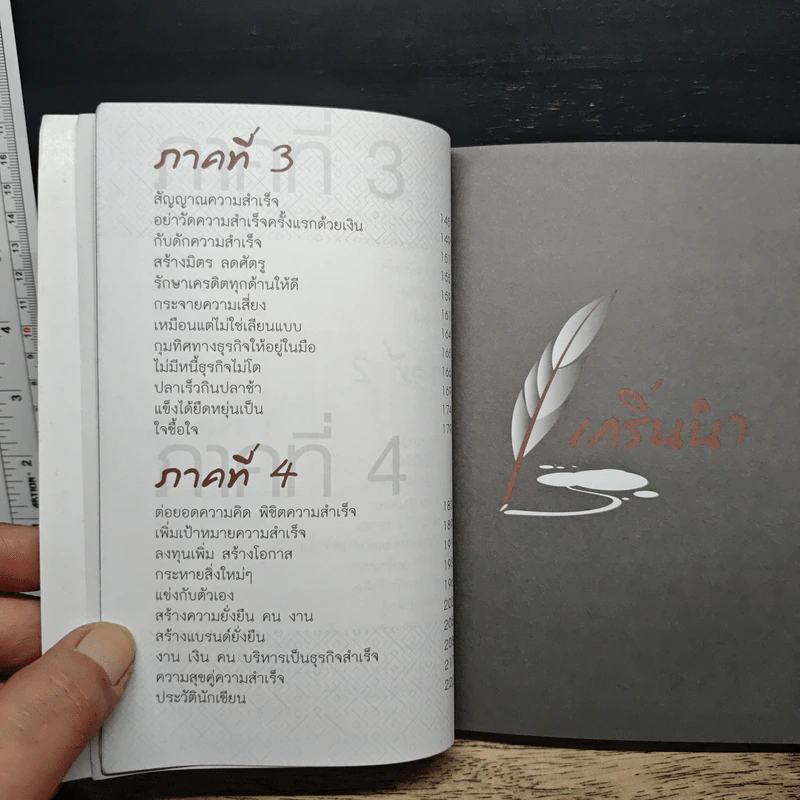 ภาคที่ 3
สัญญาณความสำเร็จ
อย่าวัดความสำเร็จครั้งแรกด้วยเงิน
กับดักความสำเร็จ
สร้างมิตร ลดศัตรู
รักษาเครดิตทุกด้านให้ดี
กระจายความเสี่ยง
เหมือนแต่ไม่ใช่เลียนแบบ
กุมทิศทางธุรกิจให้อยู่ในมือ
ไม่มีหนี้ธุรกิจไม่โต
ปลาเร็วกินปลาช้า
แข็งได้ยืดหยุ่นเป็น
ใจซื้อใจ
ภาคที่ 4
ต่อยอดความคิด พิชิตความสำเร็จ
เพิ่มเป้าหมายความสำเร็จ
ลงทุนเพิ่ม สร้างโอกาส
กระหายสิ่งใหม่ๆ
แข่งกับตัวเอง
สร้างความยั่งยืน คน งาน
สร้างแบรนด์ยั่งยืน
งาน เงิน คน บริหารเป็นธุรกิจสำเร็จ
ความสุขคู่ความสำเร็จ
ประวัตินักเขียน
เกริ่นนำ